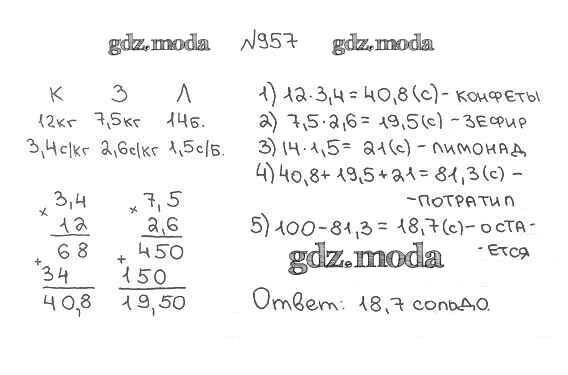 gdz.moda №957 gdz.moda
К З Л
12кг 7,5кг 14б.
3,4с/кг 2,6с/кг 1,5с/б.
× 3,4
12
68
+ 34
40,8
× 7,5
2,6
450
+ 150
19,50
1) 12·3,4 = 40,8 (с) - КОНФЕТЫ
2) 7,5·2,6 = 19,5 (с) - ЗЕФИР
3) 14·1,5 = 21 (с) - ЛИМОНАД
4) 40,8 + 19,5 + 21 = 81,3 (с) -
-ПОТРАТИЛ
5) 100 - 81,3 = 18,7 (с) - ОСТА-
-ЕТСЯ
gdz.moda
Ответ: 18,7 сольдо.